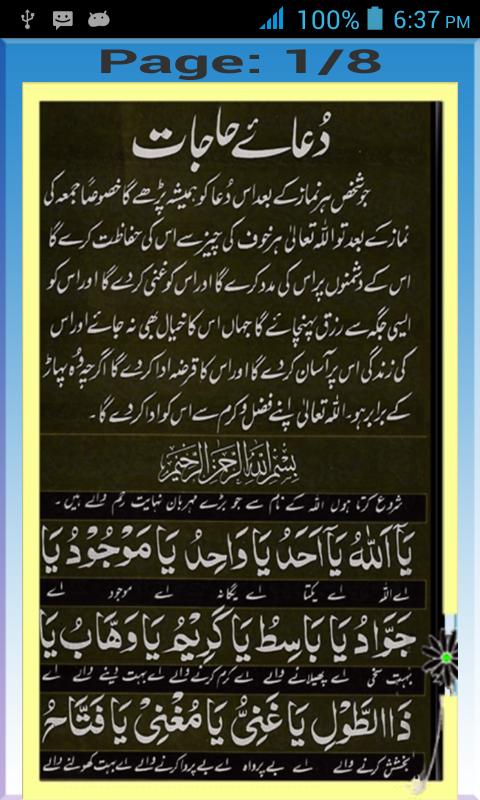 100% 6:37 PM
Page: 1/8
دُعائے حاجات
جو شخص ہر نماز کے بعد اس دُعا کو ہمیشہ پڑھے گا خصوصًا جمعہ کی
نماز کے بعد تو اللہ تعالیٰ ہر خوف کی چیز سے اس کی حفاظت کرے گا
اس کے دشمنوں پر اس کی مدد کرے گا اور اس کو غنی کر دے گا اور اس کو
ایسی جگہ سے رزق پہنچائے گا جہاں اس کا خیال بھی نہ جائے اور اس
کی زندگی اس پر آسان کر دے گا اور اس کا قرضہ ادا کر دے گا اگرچہ وُہ پہاڑ
کے برابر ہو۔ اللہ تعالیٰ اپنے فضل و کرم سے اس کو ادا کر دے گا۔
بِسْمِ اللهِ الرَّحْمٰنِ الرَّحِيْمِ
شروع کرتا ہوں اللہ کے نام سے جو بڑے مہربان نہایت رحم والے ہیں۔
يَآ اَللهُ يَآ اَحَدُ يَا وَاحِدُ يَا مَوْجُوْدُ يَا
اے اللہ اے یکتا اے یگانہ اے موجود اے
جَوَّادُ يَا بَاسِطُ يَا كَرِيْمُ يَا وَهَّابُ يَا
بہت سخی اے پھیلانے والے اے کرم کرنے والے اے بہت دینے والے اے
ذَا الطَّوْلِ يَا غَنِيُّ يَا مُغْنِيْ يَا فَتَّاحُ
بخشش کرنے والے اے بے پرواہ اے بے پرواکرنے والے اے بہت کھولنے والے